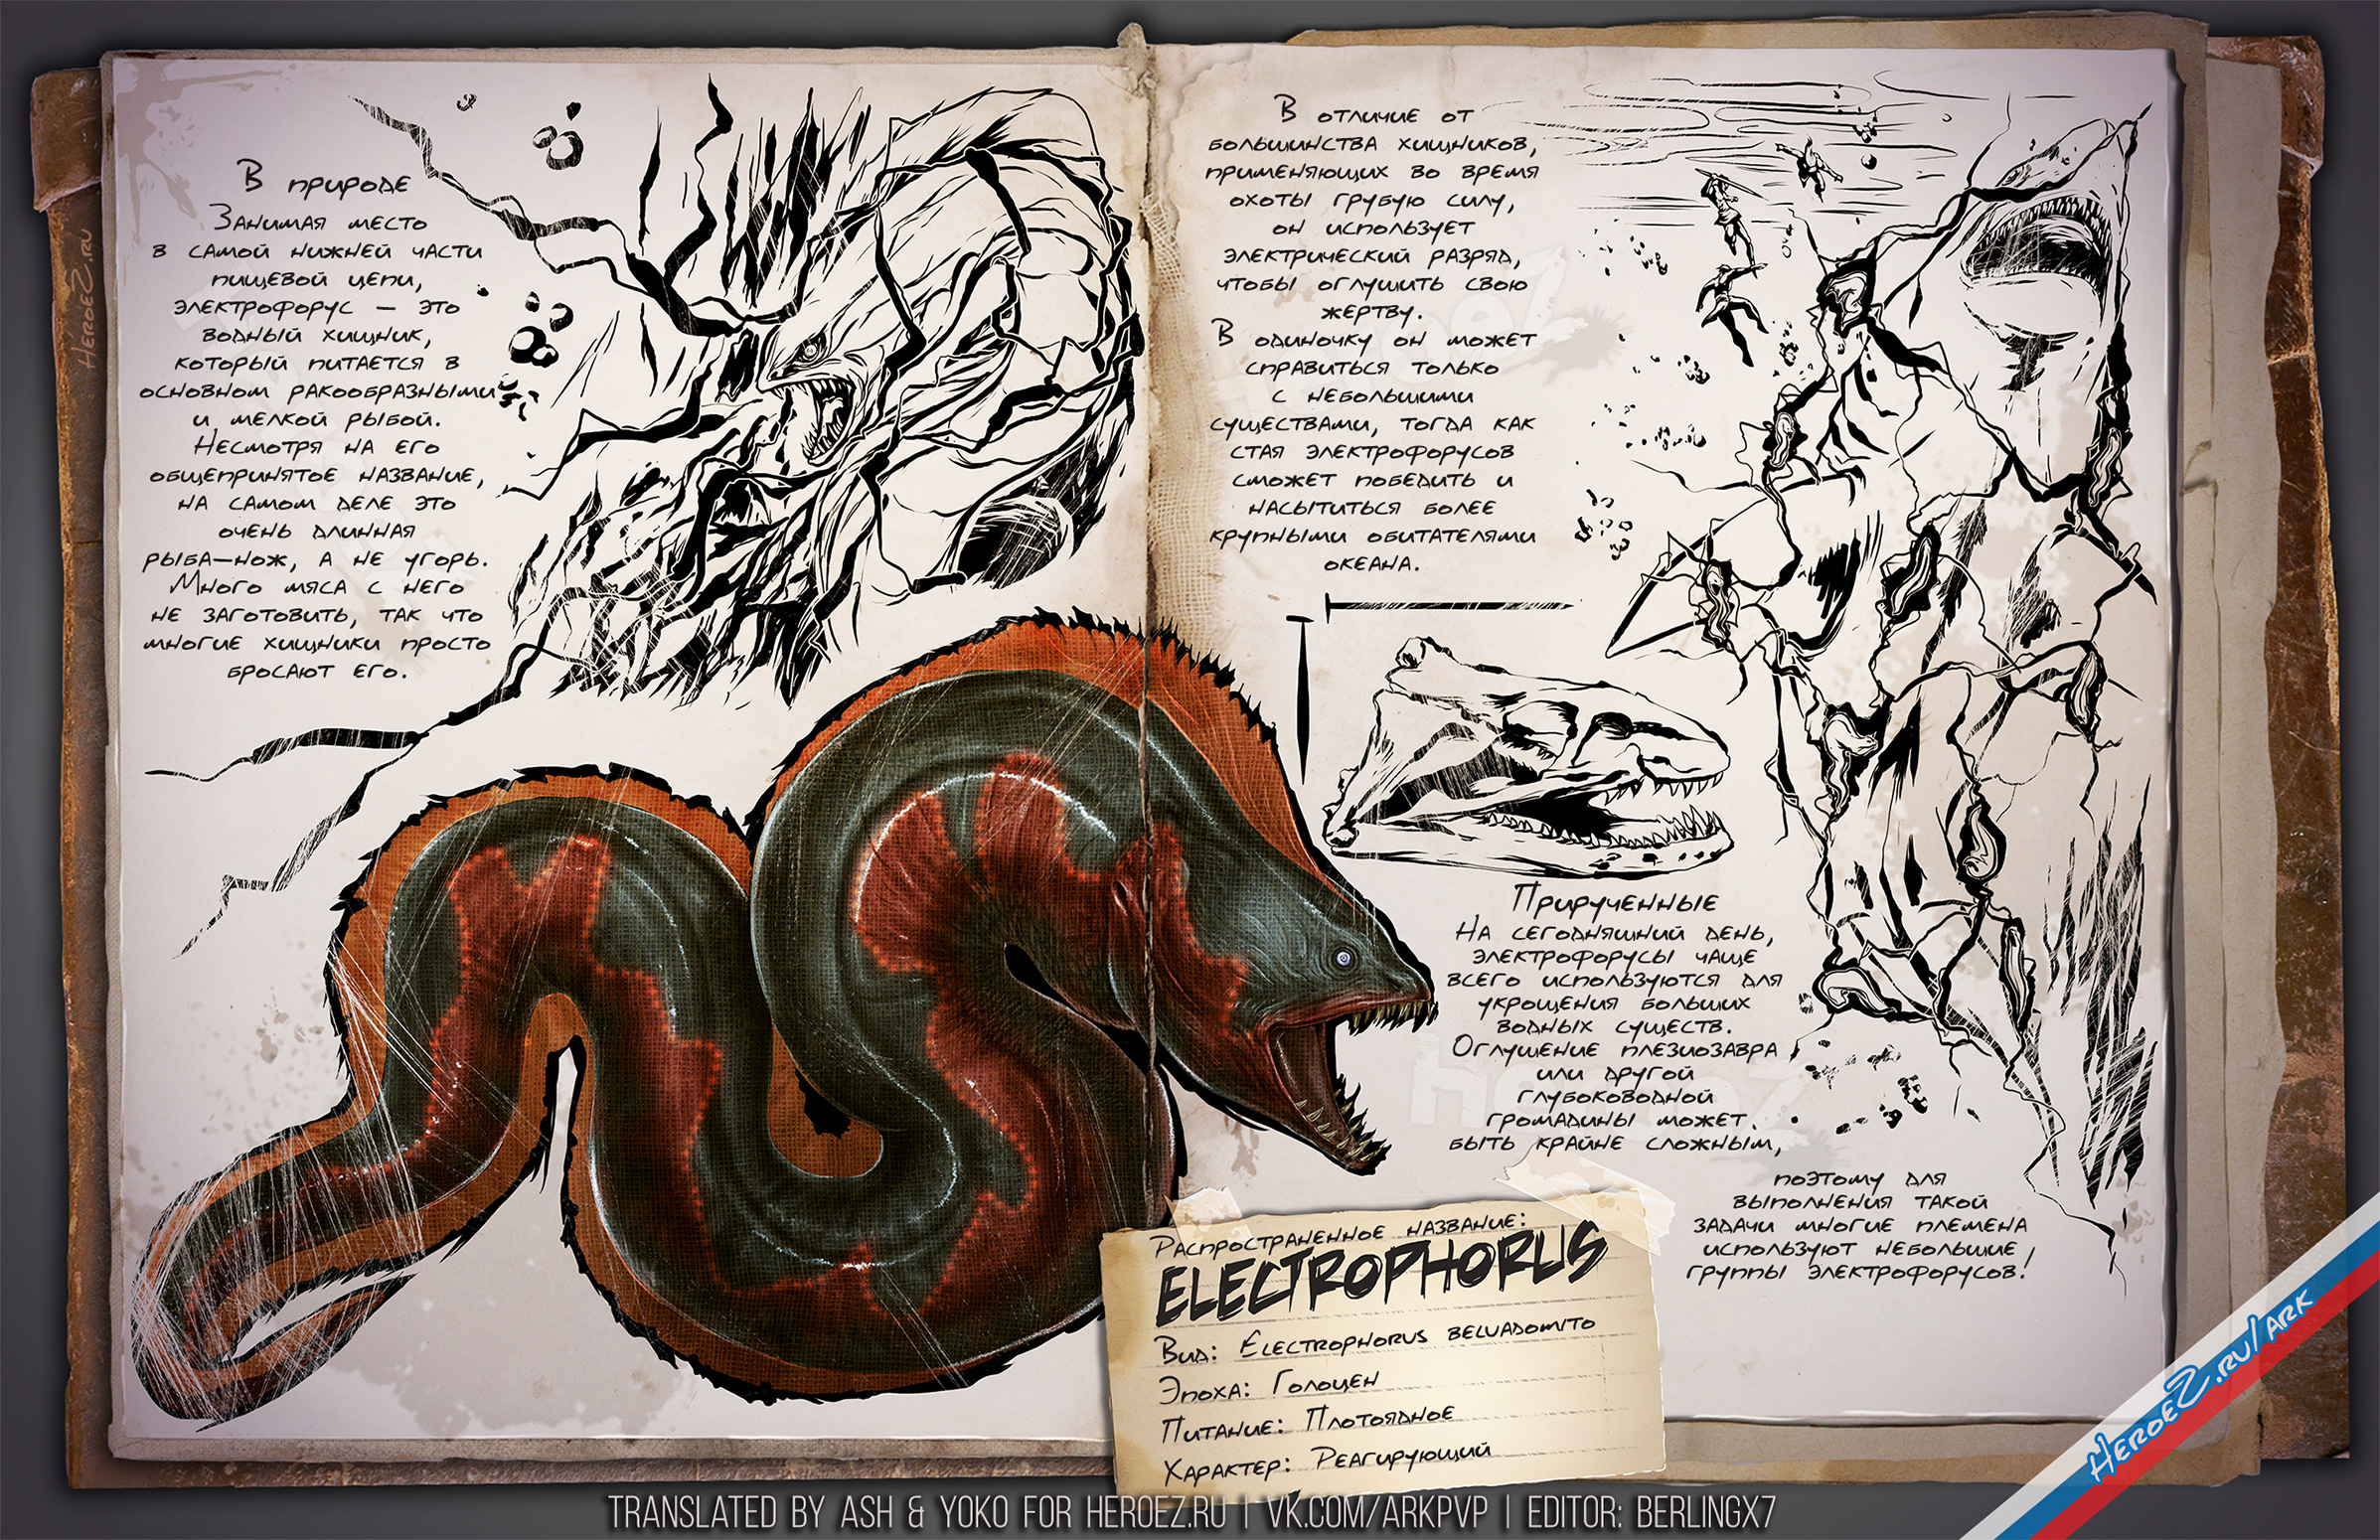 В природе
Занимая место
в самой нижней части
пищевой цепи,
электрофорус — это
водный хищник,
который питается в
основном ракообразными
и мелкой рыбой.
Несмотря на его
общепринятое название,
на самом деле это
очень длинная
рыба-нож, а не угорь.
Много мяса с него
не заготовить, так что
многие хищники просто
бросают его.
В отличие от
большинства хищников,
применяющих во время
охоты грубую силу,
он использует
электрический разряд,
чтобы оглушить свою
жертву.
В одиночку он может
справиться только
с небольшими
существами, тогда как
стая электрофорусов
сможет победить и
насытиться более
крупными обитателями
океана.
Прирученные
На сегодняшний день,
электрофорусы чаще
всего используются для
укрощения больших
водных существ.
Оглушение плезиозавра
или другой
глубоководной
громадины может
быть крайне сложным,
поэтому для
выполнения такой
задачи многие племена
используют небольшие
группы электрофорусов!
Распространенное название:
ELECTROPHORUS
Вид: Electrophorus beluadomito
Эпоха: Голоцен
Питание: Плотоядное
Характер: Реагирующий
HeroeZ.ru
HeroeZ.ru/ark
TRANSLATED BY ASH & YOKO FOR HEROEZ.RU | VK.COM/ARKPVP | EDITOR: BERLINGX7